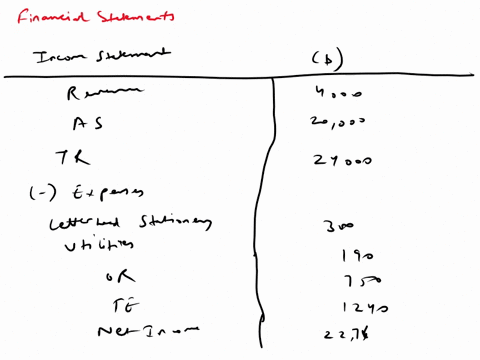 Financial Statements
Income Statement ($)
Revenue 4,000
AS 20,000
TR 24000
(-) Expenses
Letterhead Stationery 300
Utilities 190
OR 750
TE 1240
Net Income